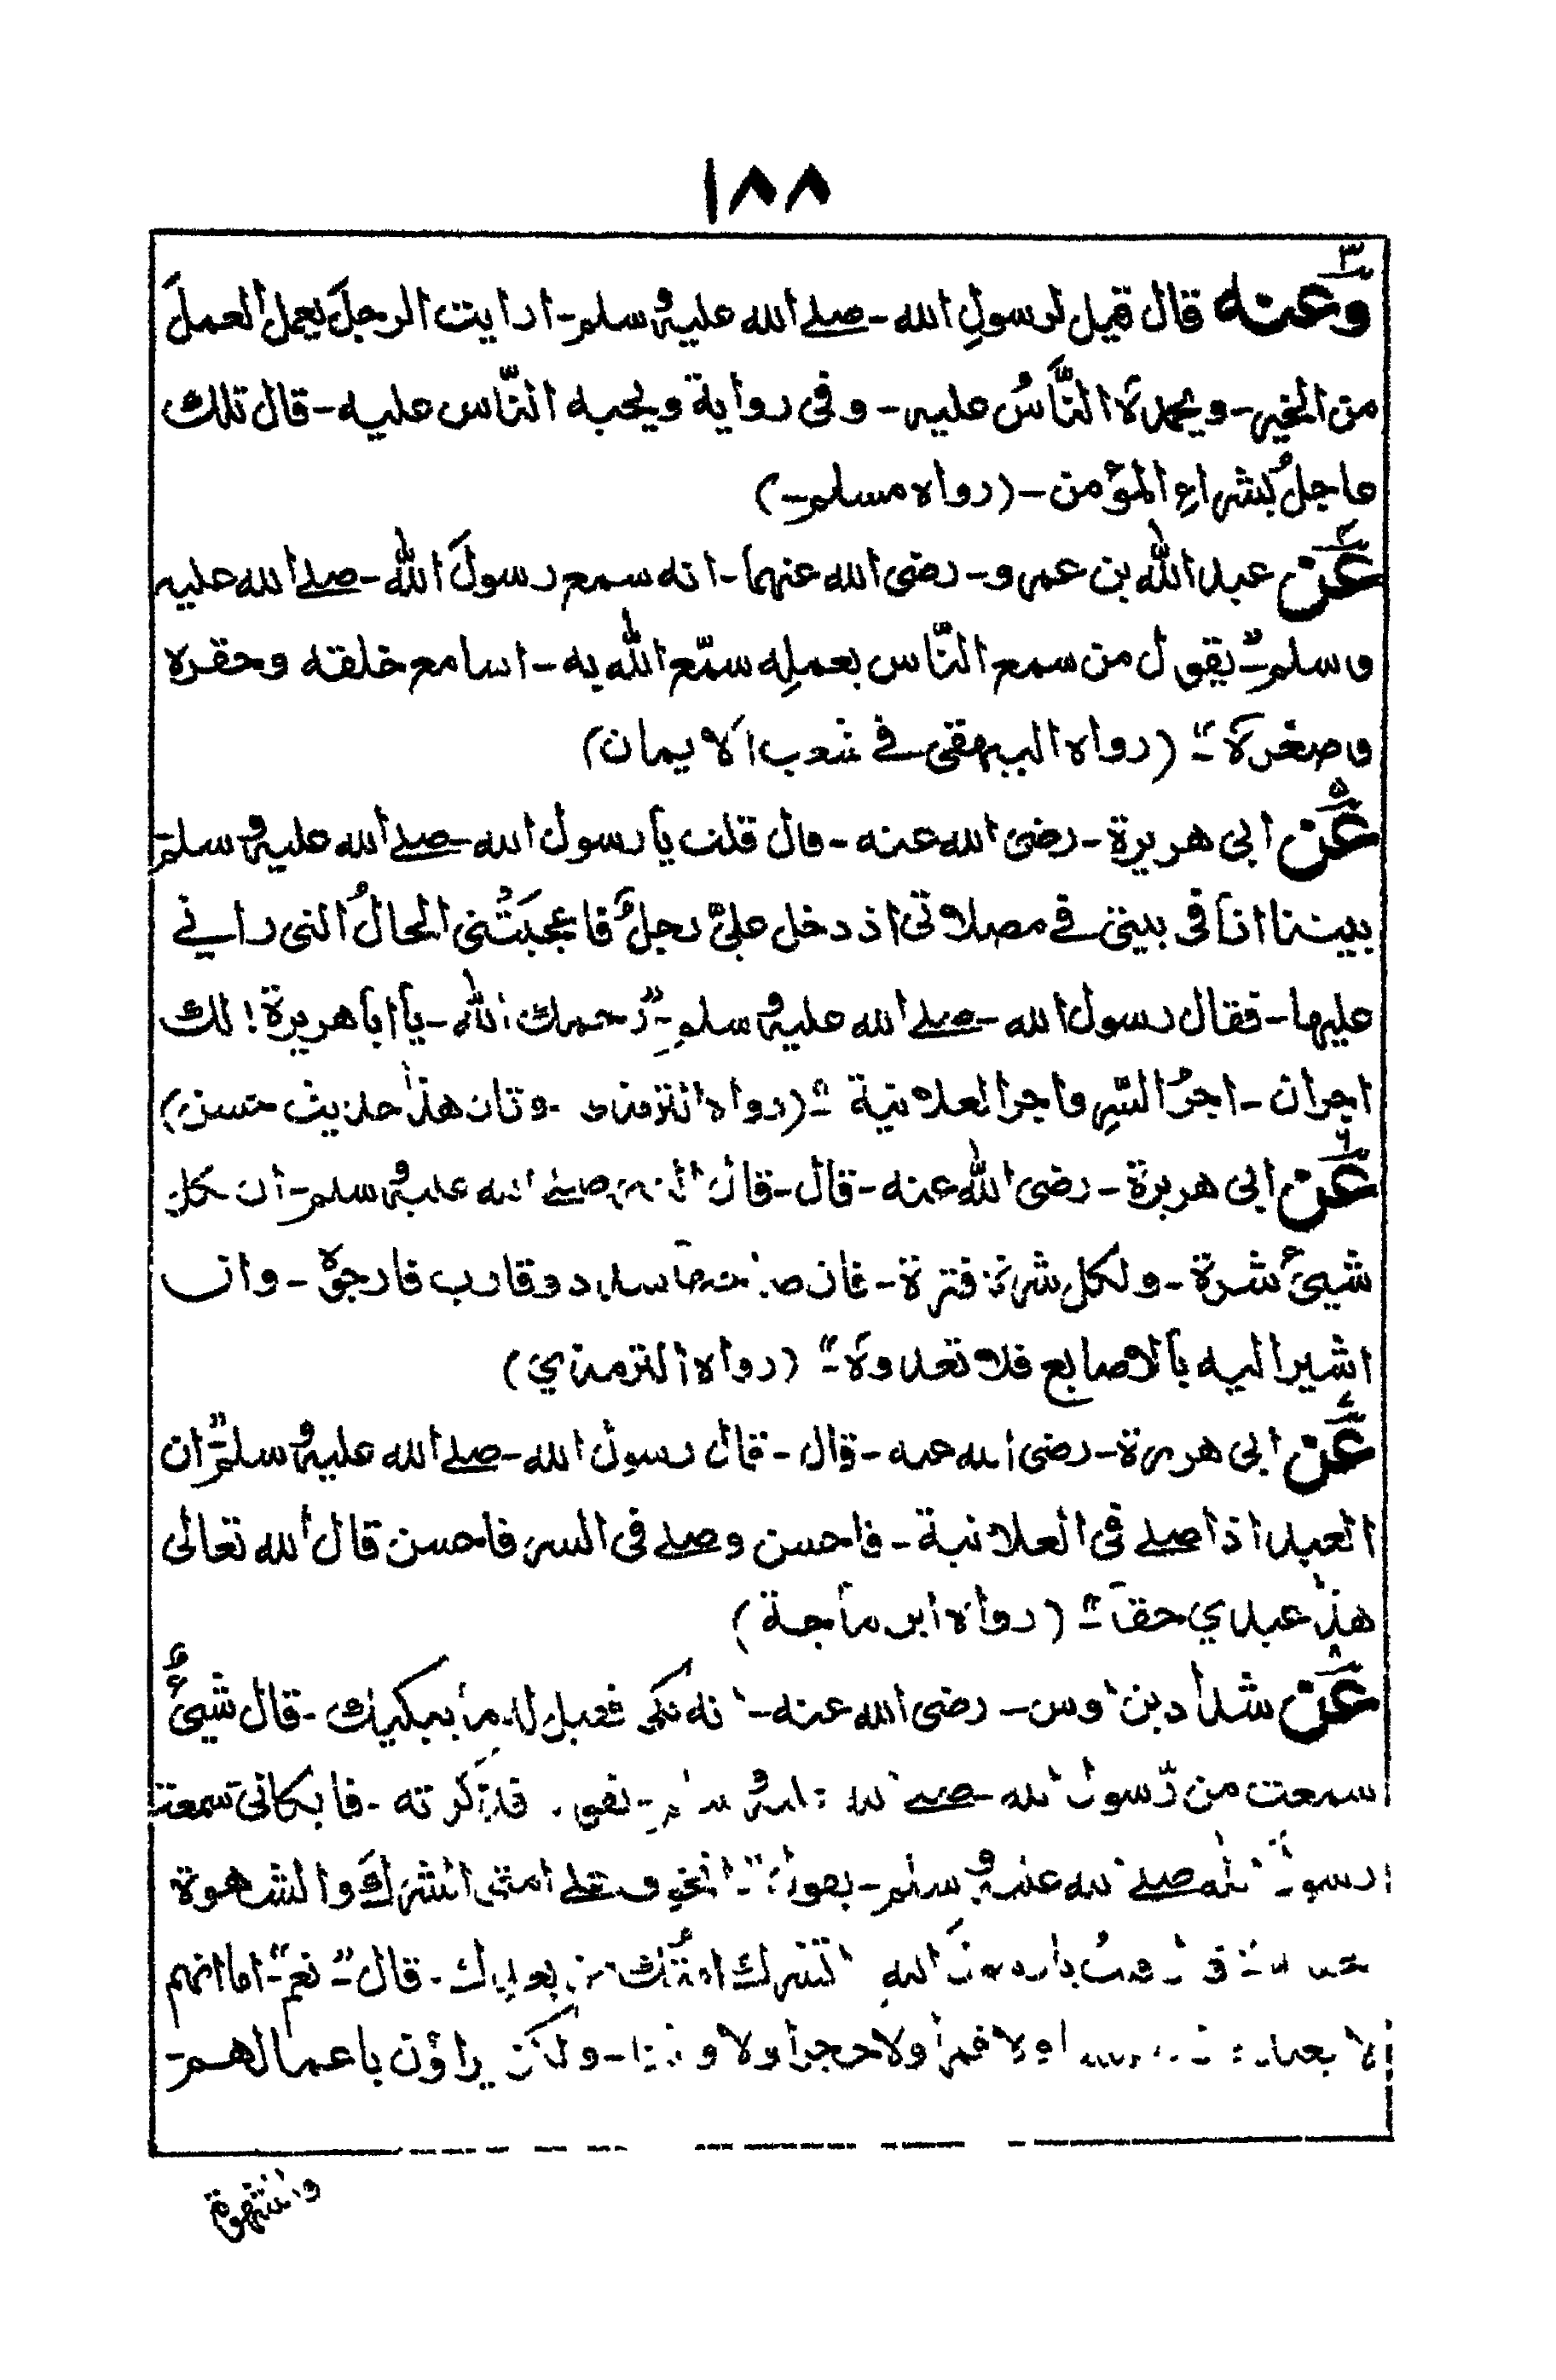 ١٨٨
٣
وَعنه قال قيل لرسولِ الله - صلے الله عليه وسلم - ارايت الرجلَ يعمل العملَ
من الخير - ويحمدهُ النَّاسُ عليه - وفى رواية ويحبه النّاس عليه - قال تلك
عاجلُ بُشراءِ المؤمن - (رواه مسلم -)
٤
عَن عبد الله بن عمرو - رضى الله عنهما - انه سمع رسولَ الله - صلے الله عليه
وسلم - "يقول من سمع النّاس بعملِه سمّع الله به - اسامع خلقه وحقره
وصغرهٗ -" (رواه البيهقى فے شعب الايمان)
٥
عَن ابى هريرة - رضى الله عنه - قال قلت يا رسول الله - صلے الله عليه وسلم -
بيننا انا فى بيتى فے مصلاتى اذ دخل علىّ رجلٌ فاعجبَتْنى الحالُ التى رانے
عليها - فقال رسول الله - صلے الله عليه وسلم - "رحمك الله - يا ابا هريرة! لك
اجران - اجرُ السّرِ واجر العلانية -" (رواه الترمذى - وقال هذا حديث حسن)
٦
عَن ابى هريرة - رضى الله عنه - قال - قال النبى صلے الله عليه وسلم - ان لكل
شيئ شرة - ولكل شرة فترة - فان صاحبها سدد وقارب فارجوهٗ - وان
اشير اليه بالاصابع فلا تعدوهٗ -" (رواه الترمذي)
٧
عَن ابى هريرة - رضى الله عنه - قال - قال رسول الله - صلے الله عليه وسلم - "ان
العبد اذا صلے فى العلانية - فاحسن وصلے فى السر فاحسن قال الله تعالى
هذا عبدي حقا -" (رواه ابن ماجة)
٨
عَن شداد بن اوس - رضى الله عنه - انه بكى فقيل له ما يبكيك - قال شيئٌ
سمعت من رّسول الله - صلے الله عليه وسلم - يقول . فذكرته - فابكانى سمعت
رسول الله صلے الله عليه وسلم - يقول "اتخوف علے امتى الشرك والشهوة
قلتُ يا رسولَ اللهِ اتشرك امتُك من بعدك - قال - "نعم - "اما انهم
لا يعبدون ولا قمرا ولا حجرا ولا وثنا - ولكن يراؤن باعمالهم -
والشهوة